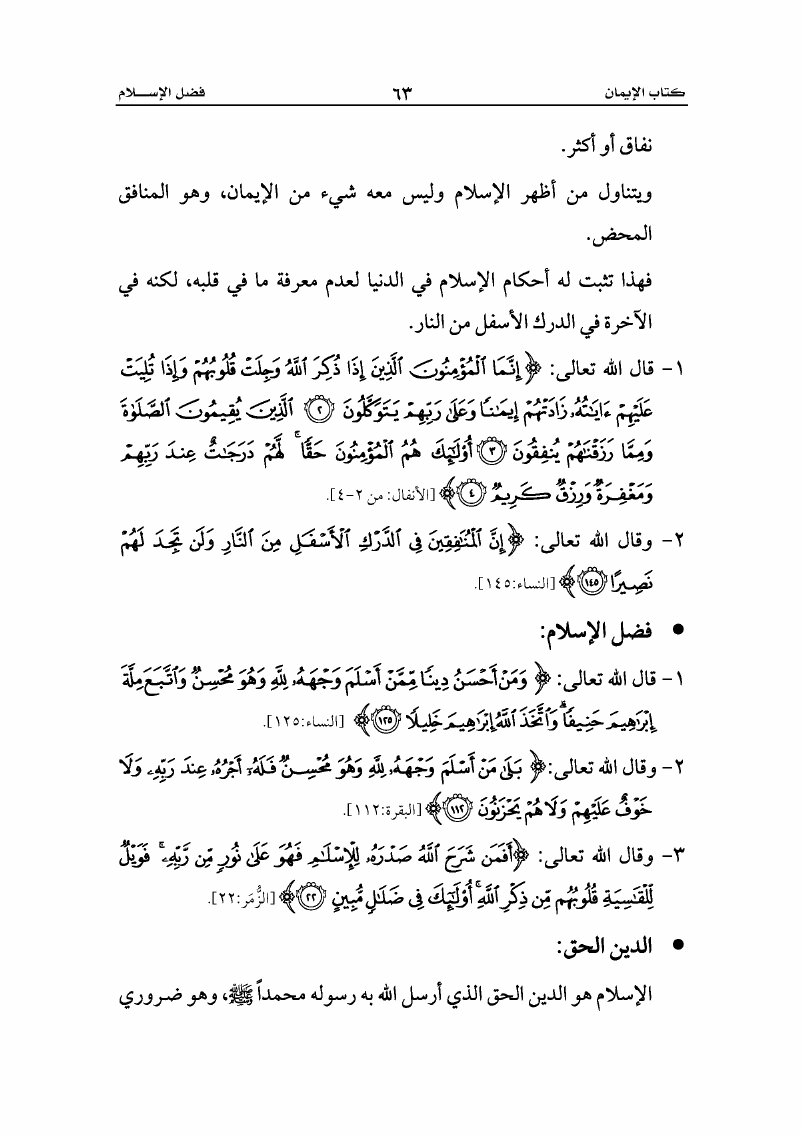 كتاب الإيمان ٦٣ فضل الإســـلام
نفاق أو أكثر.
ويتناول من أظهر الإسلام وليس معه شيء من الإيمان، وهو المنافق
المحض.
فهذا تثبت له أحكام الإسلام في الدنيا لعدم معرفة ما في قلبه، لكنه في
الآخرة في الدرك الأسفل من النار.
١- قال الله تعالى: ﴿إِنَّمَا ٱلْمُؤْمِنُونَ ٱلَّذِينَ إِذَا ذُكِرَ ٱللَّهُ وَجِلَتْ قُلُوبُهُمْ وَإِذَا تُلِيَتْ
عَلَيْهِمْ ءَايَٰتُهُۥ زَادَتْهُمْ إِيمَٰنًا وَعَلَىٰ رَبِّهِمْ يَتَوَكَّلُونَ ٢ ٱلَّذِينَ يُقِيمُونَ ٱلصَّلَوٰةَ
وَمِمَّا رَزَقْنَٰهُمْ يُنفِقُونَ ٣ أُوْلَٰٓئِكَ هُمُ ٱلْمُؤْمِنُونَ حَقًّا ۚ لَّهُمْ دَرَجَٰتٌ عِندَ رَبِّهِمْ
وَمَغْفِرَةٌ وَرِزْقٌ كَرِيمٌ ٤﴾ [الأنفال: من ٢-٤].
٢- وقال الله تعالى: ﴿إِنَّ ٱلْمُنَٰفِقِينَ فِى ٱلدَّرْكِ ٱلْأَسْفَلِ مِنَ ٱلنَّارِ وَلَن تَجِدَ لَهُمْ
نَصِيرًا ١٤٥﴾ [النساء:١٤٥].
• فضل الإسلام:
١- قال الله تعالى: ﴿وَمَنْ أَحْسَنُ دِينًا مِّمَّنْ أَسْلَمَ وَجْهَهُۥ لِلَّهِ وَهُوَ مُحْسِنٌ وَٱتَّبَعَ مِلَّةَ
إِبْرَٰهِيمَ حَنِيفًا ۗ وَٱتَّخَذَ ٱللَّهُ إِبْرَٰهِيمَ خَلِيلًا ١٢٥﴾ [النساء:١٢٥].
٢- وقال الله تعالى: ﴿بَلَىٰ مَنْ أَسْلَمَ وَجْهَهُۥ لِلَّهِ وَهُوَ مُحْسِنٌ فَلَهُۥٓ أَجْرُهُۥ عِندَ رَبِّهِۦ وَلَا
خَوْفٌ عَلَيْهِمْ وَلَا هُمْ يَحْزَنُونَ ١١٢﴾ [البقرة:١١٢].
٣- وقال الله تعالى: ﴿أَفَمَن شَرَحَ ٱللَّهُ صَدْرَهُۥ لِلْإِسْلَٰمِ فَهُوَ عَلَىٰ نُورٍ مِّن رَّبِّهِۦ ۚ فَوَيْلٌ
لِّلْقَٰسِيَةِ قُلُوبُهُم مِّن ذِكْرِ ٱللَّهِ ۚ أُوْلَٰٓئِكَ فِى ضَلَٰلٍ مُّبِينٍ ٢٢﴾ [الزُّمَر:٢٢].
• الدين الحق:
الإسلام هو الدين الحق الذي أرسل الله به رسوله محمداً ﷺ، وهو ضروري